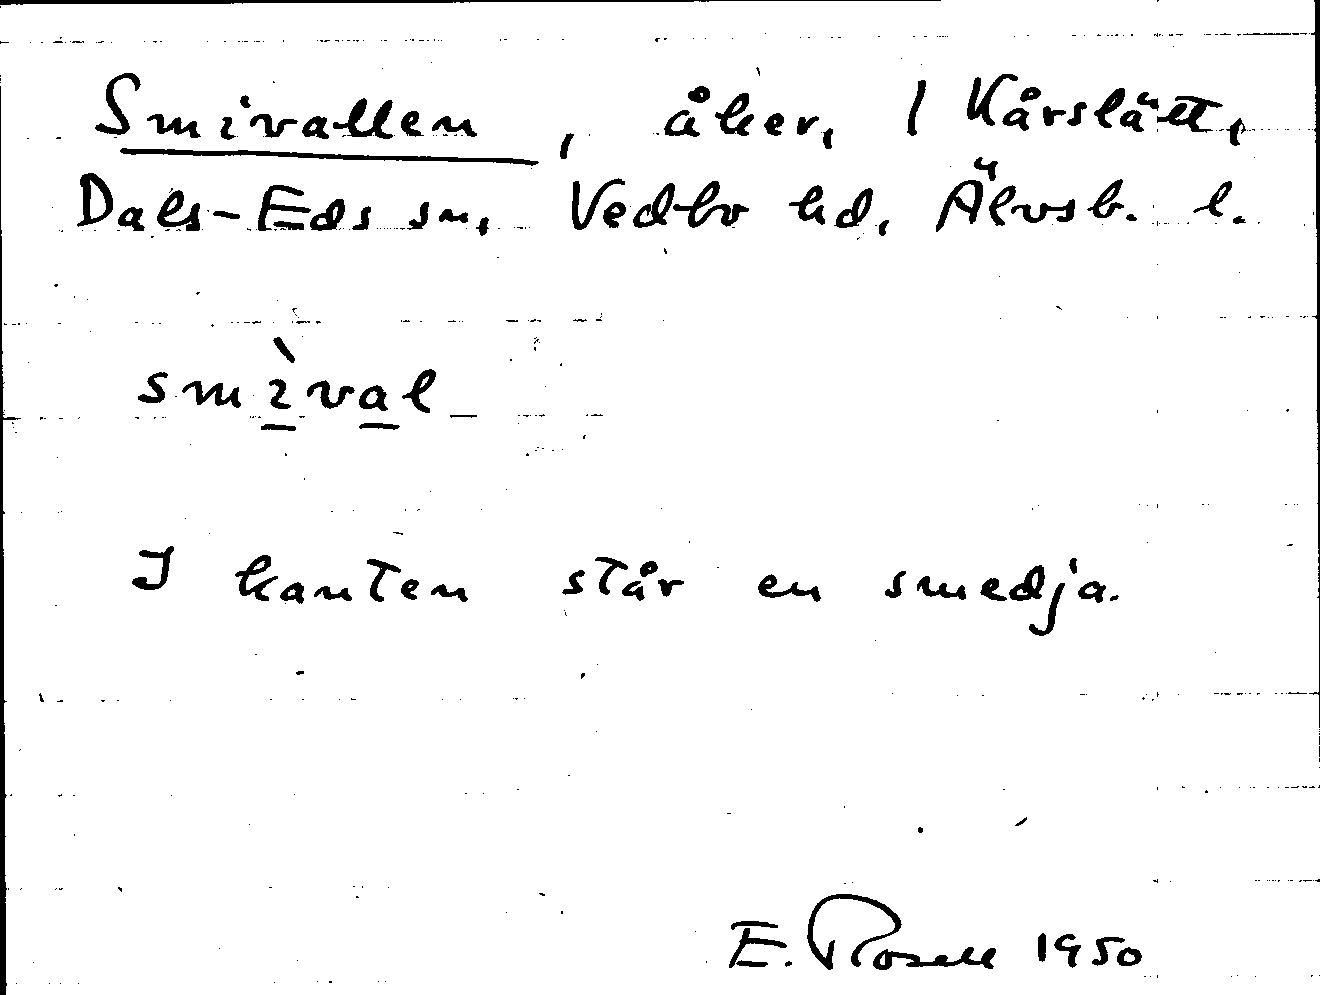 Smivallen, åker, 1 Kårslätt,
Dals-Eds sn, Vedbo hd, Älvsb. l.
smìval
I kanten står en smedja.
E. Rosell 1950